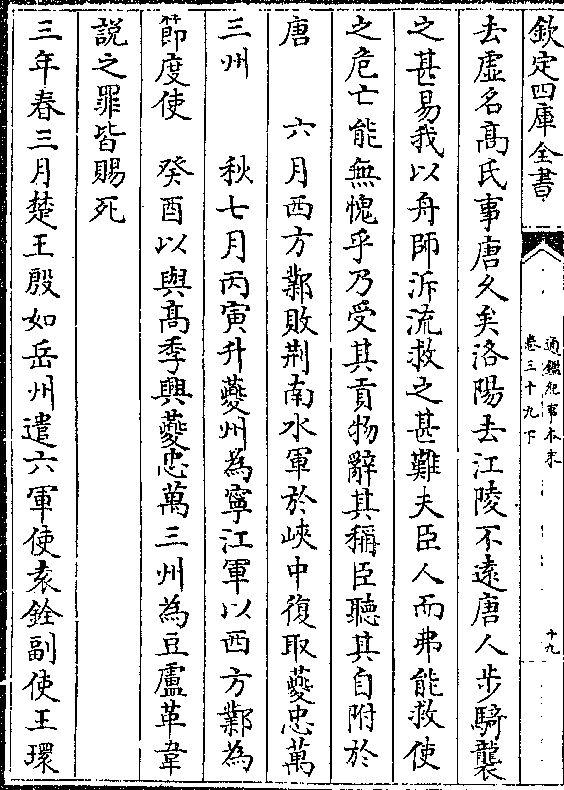 欽定四庫全書
通鑑紀事本末
卷三十九下
十九
去虚名高氏事唐久矣洛陽去江陵不遠唐人步騎襲
之甚易我以舟師泝流救之甚難夫臣人而弗能救使
之危亡能無愧乎乃受其貢物辭其稱臣聽其自附於
唐 六月西方鄴敗荆南水軍於峽中復取夔忠萬
三州 秋七月丙寅升夔州為寧江軍以西方鄴為
節度使 癸酉以與高季興夔忠萬三州為豆盧革韋
説之罪皆賜死
三年春三月楚王殷如岳州遣六軍使袁銓副使王環